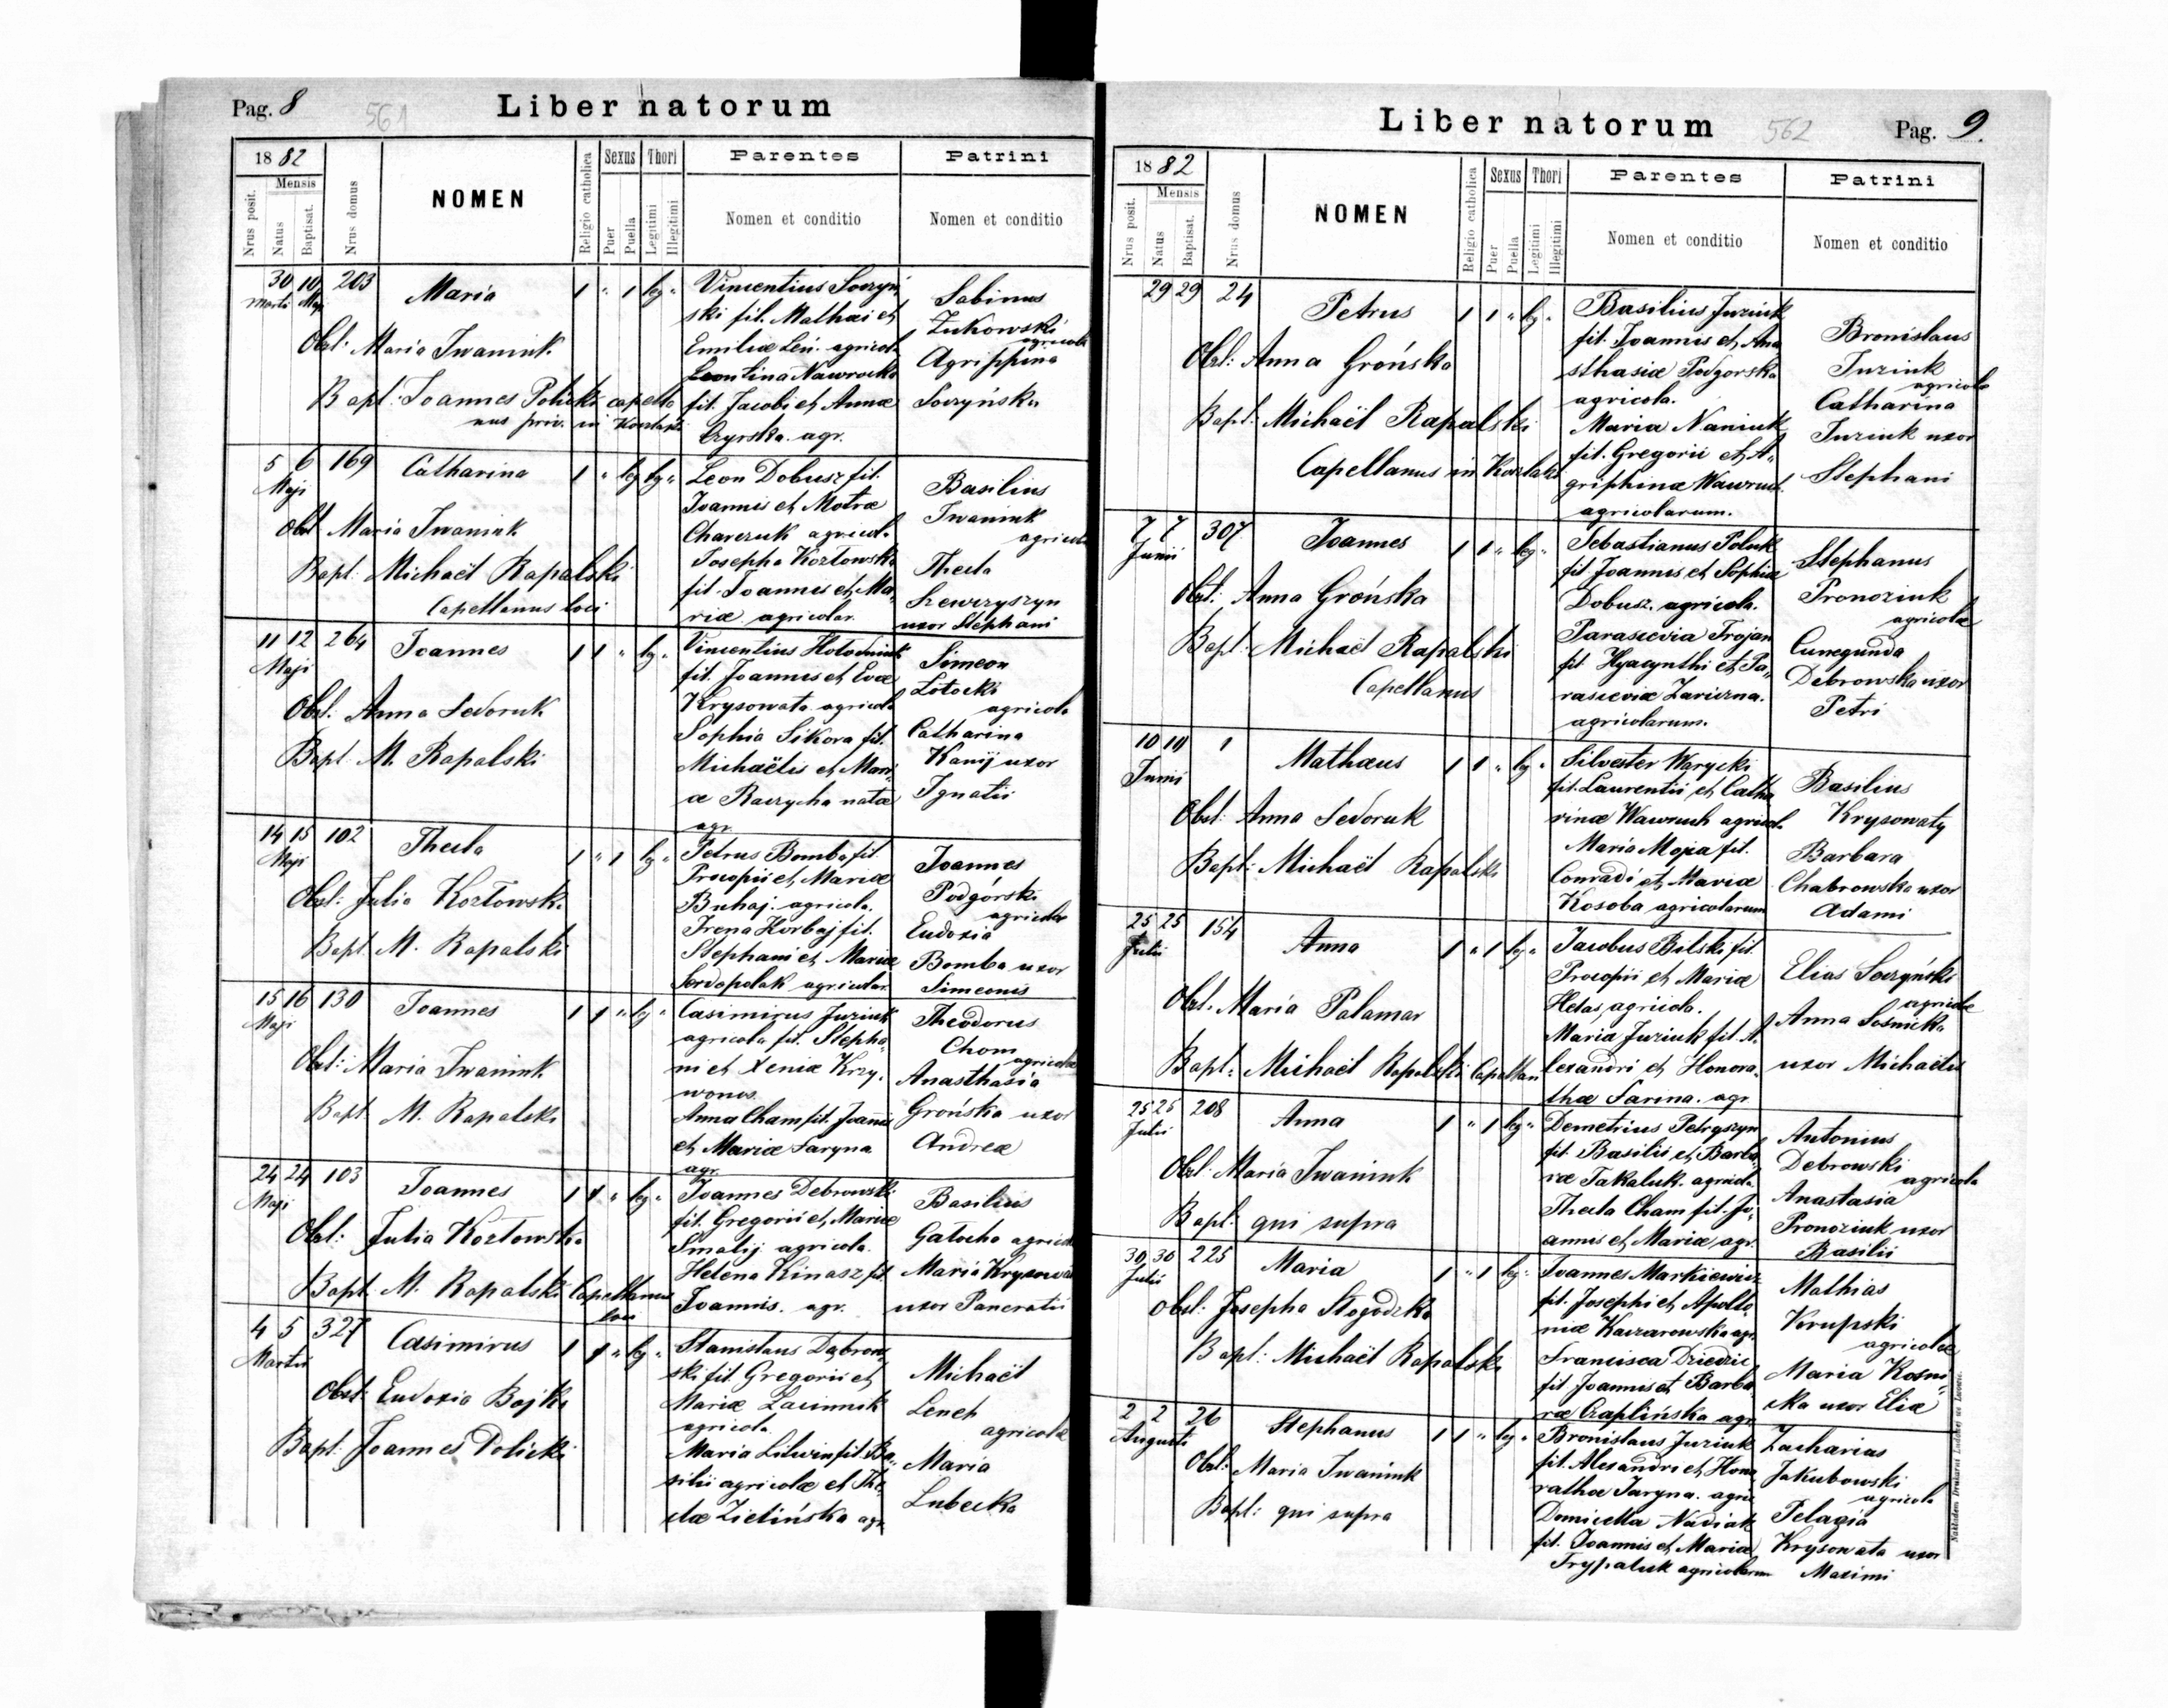 Pag. 8
561
Liber natorum
18 82
Nrus posit.
Mensis
Natus
Baptisat.
Nrus domus
NOMEN
Religio catholica
Sexus
Puer
Puella
Thori
Legitimi
Illegitimi
Parentes
Nomen et conditio
Patrini
Nomen et conditio
30 10 203 Maria 1 " 1 leg "
Martii Maji
Obst. Maria Iwaniuk
Bapt. Joannes Polieki capella
nus priv. in
Vincentius Soczyń
ski fil. Mathæi et
Emiliæ Leń. agricola
Leontina Nawrocka
fil. Jacobi et Annæ
Czyrska. agr.
Sabinus
Żukowski
agricola
Agrippina
Soczyńska
5 6 169 Catharina 1 " leg leg "
Maji
Obst Maria Iwaniuk
Bapt. Michaël Rapalski
Capellanus loci
Leon Dobusz fil.
Joannis et Motræ
agricola
Josepha Kozłowska
fil. Joannis et Ma,
riæ agricolar.
Basilius
Iwaniuk
agricola
Thecla
Szewczyszyn
uxor Stephani
11 12 264 Joannes 1 1 " leg "
Maji
Obst. Anna Sedoruk
Bapt. M. Rapalski
Vincentius Hołodniuk
fil. Joannis et Evæ
Krysowata agricola
Sophia Sikora fil.
Michaëlis et Mari
æ Raczycha natæ
agr.
Simeon
Lotocki
agricola
Catharina
Kanij uxor
Ignatii
14 15 102 Thecla 1 " 1 leg "
Maji
Obst. Julia Kozłowska
Bapt M. Rapalski
Petrus Bomba fil.
Procopii et Mariæ
Buhaj. agricola.
Irena Horbaj fil.
Stephani et Mariæ
Serdopolak agricolar.
Joannes
Podgórski
agricola
Eudoxia
Bomba uxor
Simeonis
15 16 130 Joannes 1 1 " leg "
Maji
Obst: Maria Iwaniuk
Bapt M. Rapalski
Casimirus Juziuk
agricola fil. Stepha,
ni et Xeniæ Krzy,
wonos.
Anna Cham fil. Joannis
et Mariæ Saryna
agr.
Theodorus
Chom
agricola
Anasthasia
Grońska uxor
Andreæ
24 24 103 Joannes 1 1 " leg "
Maji
Obst: Julia Kozłowska
Bapt. M. Rapalski Capellanus
loci
Joannes Debrowski
fil. Gregorii et Mariæ
Smalij agricola.
Helena Kinasz fil.
Joannis. agr.
Basilius
Gatocha agricola
Maria Krysowata
uxor Pancratii
4 5 327 Casimirus 1 1 " leg "
Martii
Obst: Eudoxia Bojko
Bapt: Joannes Polieki
Stanislaus Dąbrow
ski fil Gregorii et
Mariæ
agricola
Maria Litwin fil. Ba,
silii agricolæ et The
clæ Zielińska agr
Michaël
Lench
agricola
Maria
Lubecka
Liber natorum
562
Pag. 9.
18 82
Nrus posit.
Mensis
Natus
Baptisat.
Nrus domus
NOMEN
Religio catholica
Sexus
Puer
Puella
Thori
Legitimi
Illegitimi
Parentes
Nomen et conditio
Patrini
Nomen et conditio
29 29 24 Petrus 1 1 " leg "
Obst: Anna Grońska
Bapt: Michaël Rapalski
Capellanus in
Basilius Juziuk
fil. Joannis et Ana
sthasiæ Podgorska
agricola.
Maria Naniuk
fil. Gregorii et A,
griphinæ Wawruch.
agricolarum.
Bronislaus
Juziuk
agricola
Catharina
Juziuk uxor
Stephani
7 7 307 Joannes 1 1 " leg "
Junii
Obst: Anna Grońska
Bapt: Michaël Rapalski
Capellanus
Sebastianus Poluk
fil Joannis et Sophiæ
Dobusz. agricola.
Parascevia Trojan
fil. Hyacynthi et Pa,
rasceviæ
agricolarum.
Stephanus
Pronoziuk
agricola
Cunegunda
Debrowska uxor
Petri
10 10 1 Mathæus 1 1 " leg "
Junii
Obst: Anna Sedoruk
Bapt: Michaël Rapalski
Silvester Warycki
fil. Laurentii et Catha
rinæ Wawruch agricol.
Maria Moja fil.
Conradi et Mariæ
Kosoba agricolarum
Basilius
Krysowaty
Barbara
Chabrowska uxor
Adami
25 25 154 Anna 1 " 1 leg "
Julii
Obst. Maria Palamar
Bapt. Michaël Rapalski Capellan
Jacobus Bilski fil.
Procopii et Mariæ
Helas, agricola.
Maria Juziuk fil. A,
lexandri et Honora,
thæ Sarina. agr
Elias Soczyński
agricola
Anna Sośnicka
uxor Michaëlis
25 25 208 Anna 1 " 1 leg "
Julii
Obst. Maria Iwaniuk
Bapt. qui supra
Demetrius Petryszyn
fil. Basilii et Barba
ræ Takaluk. agricola.
Thecla Cham fil. Jo,
annis et Mariæ agr.
Antonius
Debrowski
agricola
Anastasia
Pronoziuk uxor
Basilii
30 30 225 Maria 1 " 1 leg "
Julii
Obst. Josepha Stogodzka
Bapt: Michaël Rapalski
Joannes Markiewicz
fil. Josephi et Apollo
niæ Kaczarowska agr.
Francisca Dziedzic
fil Joannis et Barba
ræ Czaplińska agr
Mathias
Krupski
agricola
Maria Kosni,
cka uxor Eliæ
2 2 26 Stephanus 1 1 " leg "
Augusti
Obst: Maria Iwaniuk
Bapt: qui supra
Bronislaus Juziuk
fil. Alexandri et Hono
rathæ Saryna. agric
Domicella Nadiak
fil. Joannis et Mariæ
Trypaluk agricolarum
Zacharias
Jakubowski
agricola
Pelagia
Krysowata uxor
Maximi